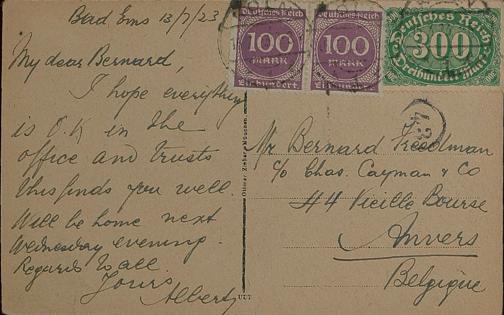 Bad Ems 13/7/23
My dear Bernard,
I hope everything
is O.K in the
office and trusts
this finds you well.
Will be home next
Wednesday evening.
Regards to all.
Yours
Albert
Deutsches Reich
100
MARK
Einhundert
Deutsches Reich
100
MARK
Einhundert
Deutsches Reich
300
Dreihundert Mark
43
Mr Bernard
c/o Chas. Cayman & Co
44 Vieille Bourse
Anvers
Belgique